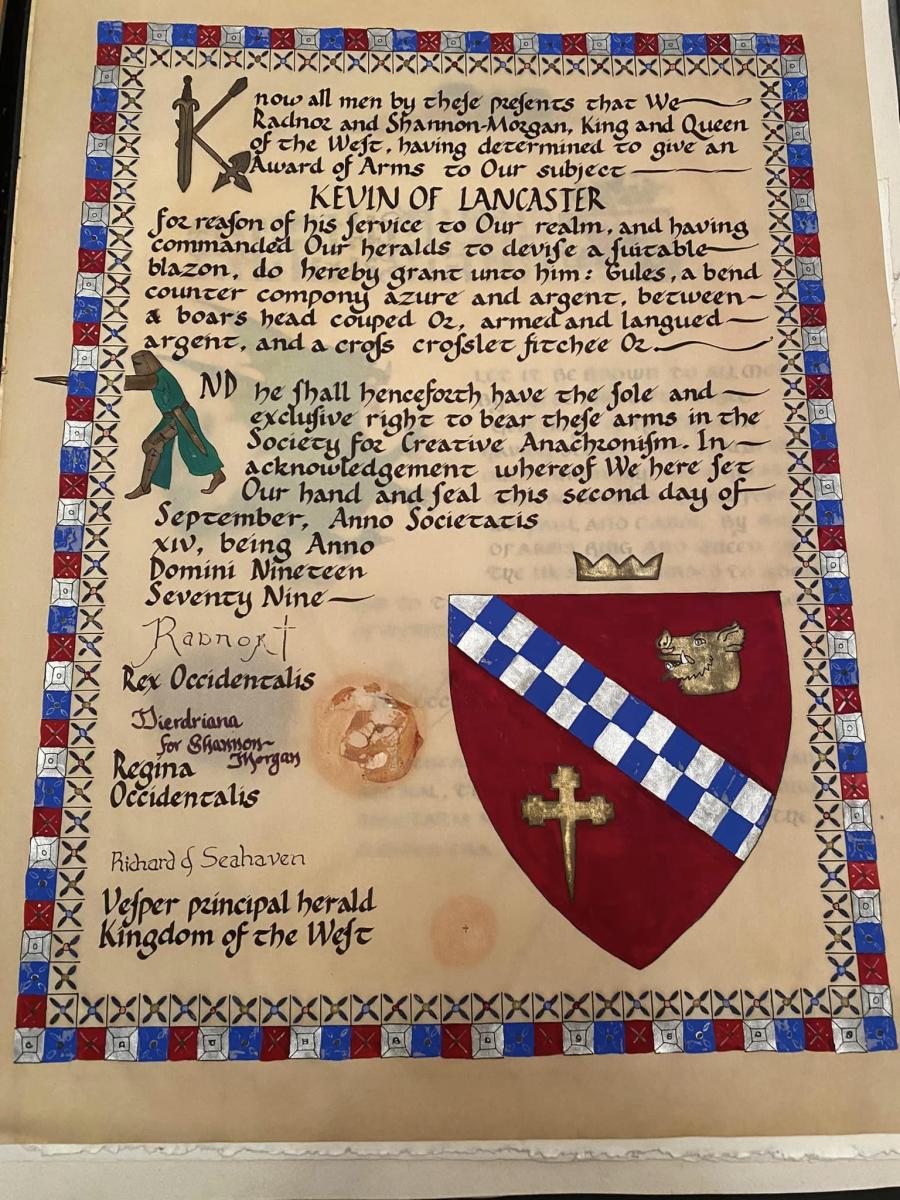 Know all men by theſe preſents that We
Radnor and Shannon-Morgan, King and Queen
of the Weſt, having determined to give an
Award of Arms to Our subject
KEVIN OF LANCASTER
for reaſon of his ſervice to Our realm, and having
commanded Our heralds to deviſe a ſuitable
blazon, do hereby grant unto him: Gules, a bend
counter compony azure and argent, between
a boars head couped Or, armed and langued
argent, and a croſs croſslet fitchee Or
AND he ſhall henceforth have the ſole and
excluſive right to bear theſe arms in the
Society for Creative Anachroniſm. In
acknowledgement whereof We here ſet
Our hand and ſeal this second day of
September, Anno Societatis
XIV, being Anno
Domini Nineteen
Seventy Nine
Radnor
Rex Occidentalis
Dierdriana
for Shannon-
Morgan
Regina
Occidentalis
Richard of Seahaven
Veſper principal herald
Kingdom of the Weſt